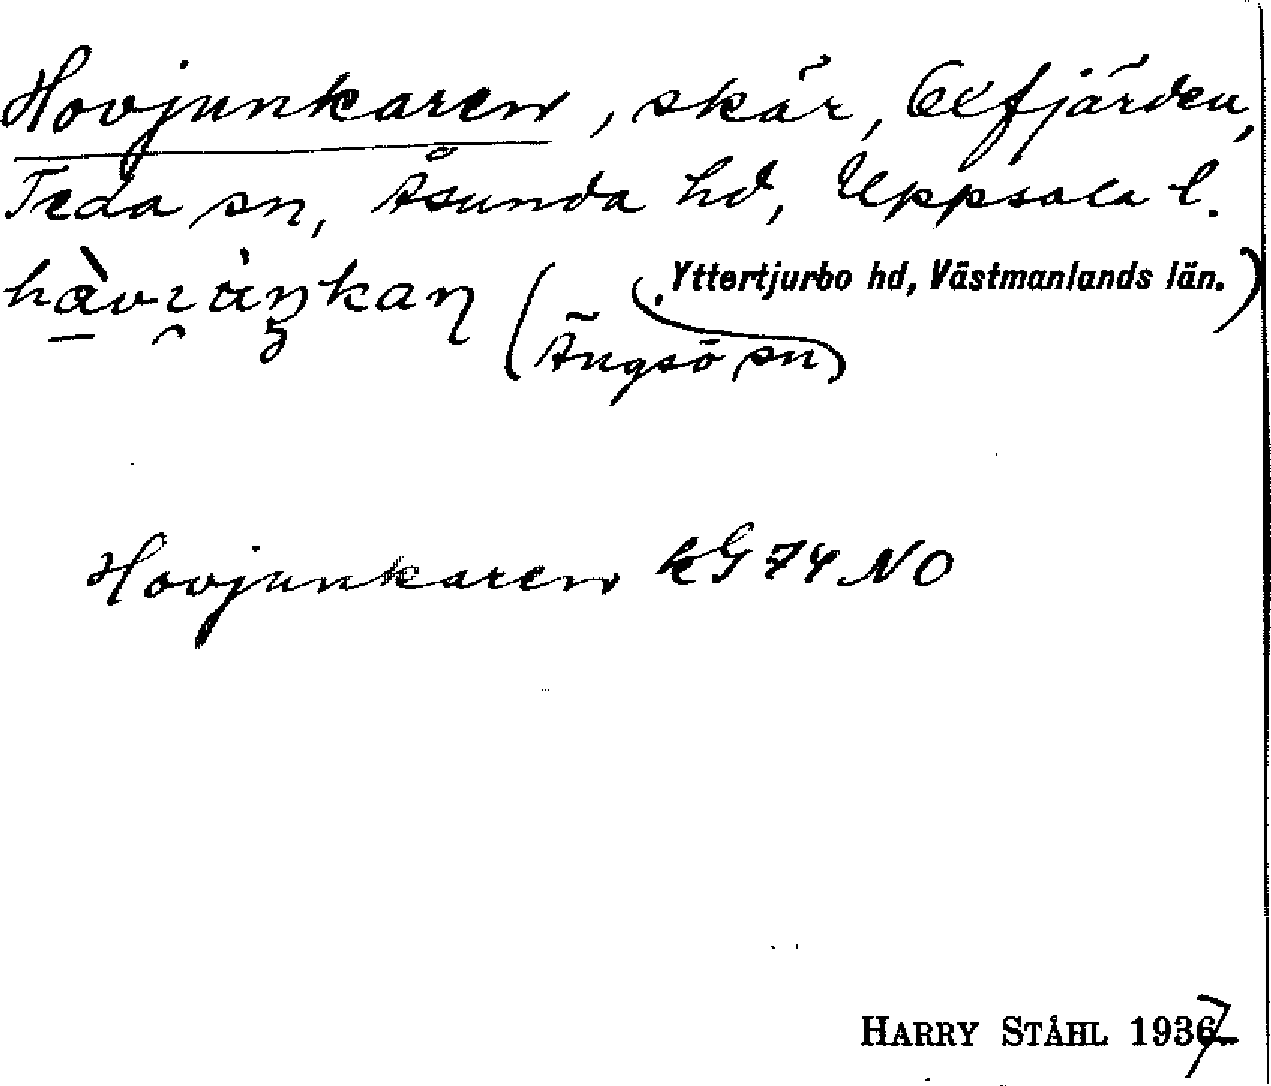 Hovjunkaren, skär, Oxfjärden,
Teda sn, Åsunda hd, Uppsala l.
(Ängsö sn, Yttertjurbo hd, Västmanlands län.)
Hovjunkaren kG 74 NO
HARRY STÅHL 1937